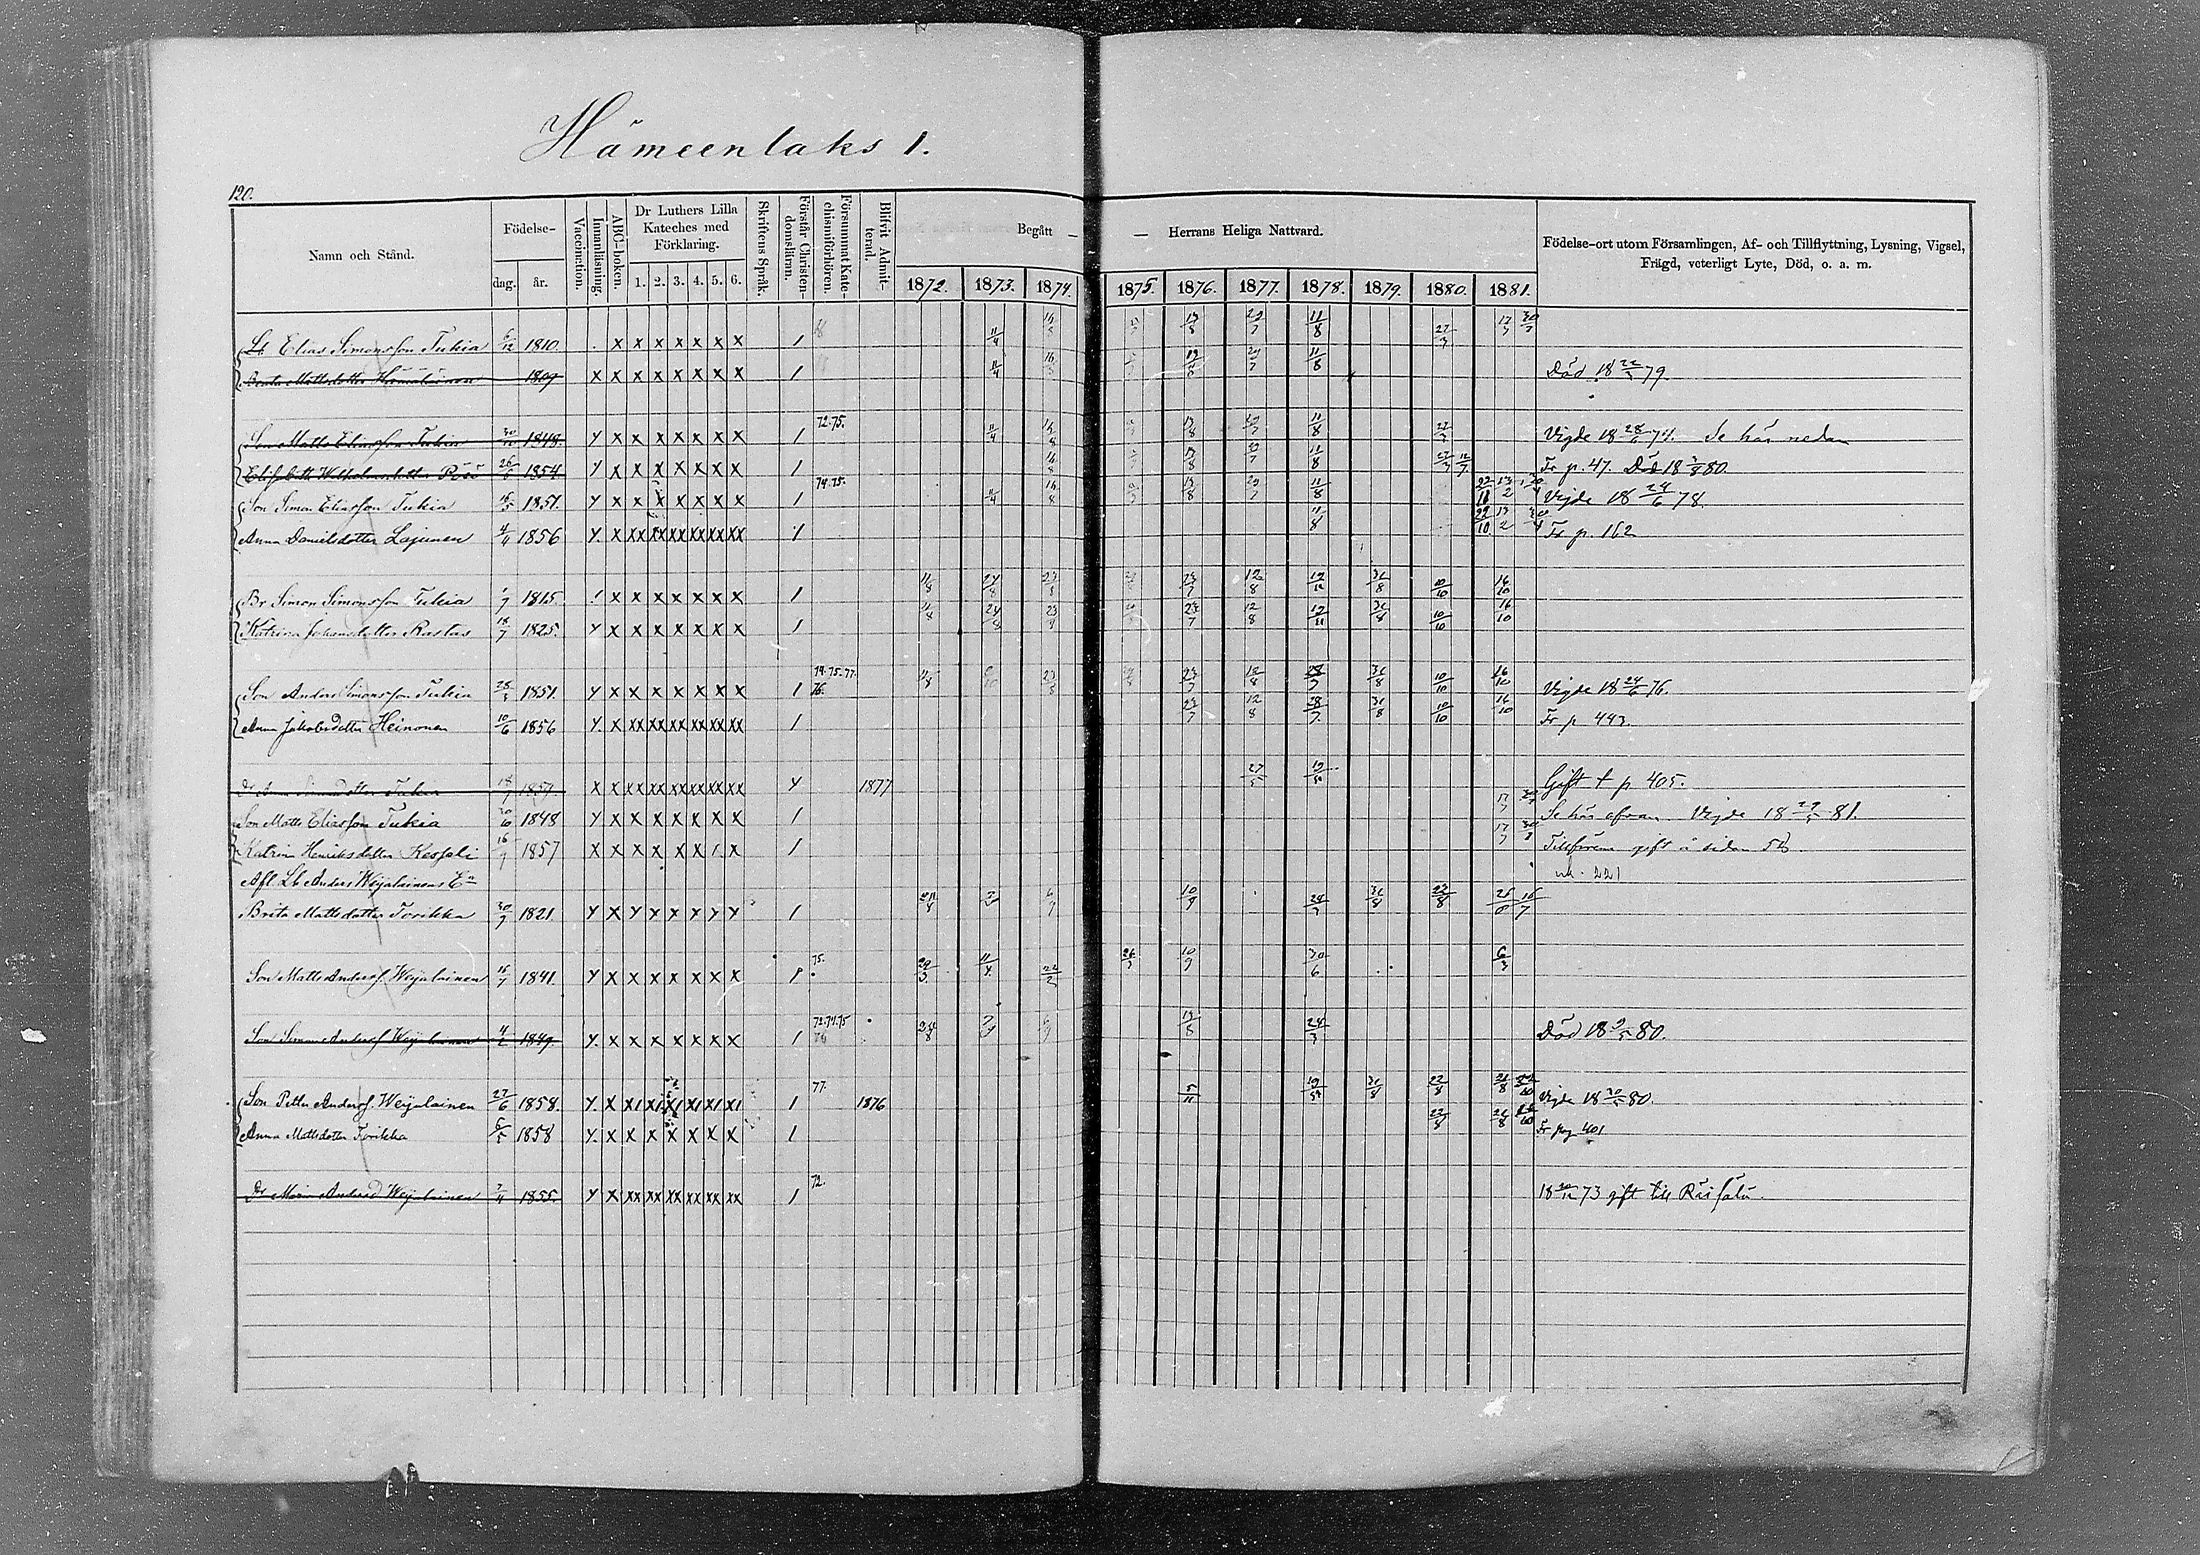 Hämeenlaks 1.
120.
Namn och Stånd. Födelse- dag. år. Vaccination. Innanläsning. ABC-boken. Dr Luthers Lilla Kateches med Förklaring. 1. 2. 3. 4. 5. 6. Skriftens Språk. Förstår Christendomsläran. Försummat Katechismiförhören. Blifvit Admitterad. Begått — — Herrans Heliga Nattvard. 1872. 1873. 1874. 1875. 1876. 1877. 1878. 1879. 1880. 1881. Födelse-ort utom Församlingen, Af- och Tillflyttning, Lysning, Vigsel, Frägd, veterligt Lyte, Död, o. a. m.
Lb Elias Simonsson Tukia 1810. x x x x x x x 1 11/4 19/8 29/7 11/8
Mattsdotter Hämäläinen 1809 x x x x x x x x 1 11/4 19/8 29/7 11/8 Död 18 79.
Son Matts Eliasson Tukia 1848. x x x x x x x 1 72.75. 11/4 19/8 29/7 11/8 Vigde 18 28/6 74. Se här nedan
Elisabeth Wilhelmsdotter 26/6 1854 x x x x x x x 1 19/8 11/8 Fr p. 47. Död 18 80.
Son Simon Eliasson Tukia 15/5 1851. x x x x x x x 1 74.75. 11/4 19/8 29/7 11/8 Vigde 18 24/6 78.
Anna Danielsdotter Lajunen 4/11 1856 x xx xx xx xx xx xx 1 11/8 Fr p. 162
Br Simon Simonsson Tukia 1/7 1815. x x x x x x x 1 11/8 24/8 23/8 23/7 12/8 31/8 10/10 16/10
Katrina Johansdotter Rastas 18/7 1825. x x x x x x x 1 11/8 24/8 23/8 23/7 12/8 19/11 31/8 10/10 16/10
Son Anders Simonsson Tukia 28/3 1851. x x x x x x x 1 74.75.77. 76. 11/8 23/8 23/7 12/8 28/7 31/8 10/10 16/10 Vigde 18 24/6 76.
Anna Jakobsdotter Heinonen 10/6 1856 x xx xx xx xx xx xx 1 23/7 12/8 28/7 31/8 10/10 16/10 Fr p 443.
Dr Anna Simonsdotter Tukia 18/7 1857. x x xx xx xx xx xx xx 1877 27/5 Gift t p 405.
Son Matts Eliasson Tukia 1848 x x x x x x x 1 Se här ofvan. Vigde 18 81.
Katrina Henriksdotter 1857 x x x x x x 1 Tillförene gift å sidan
Afl. Lb Anders Weijalainens En
Brita Mattsdotter Torikka 30/9 1821. x x x x 1 10/9 31/8
Son Matts Anders. Weijalainen 1841. x x x x x x x 1 75. 29/3 11/4 22/2 26/3 10/9 30/6 6/3
Son Simon Anders Weijalainen 4/2 1849. x x x x x x x 1 72.74.75 19/8 24/3 Död 18 80.
Son Petter Anders. Weijalainen 27/6 1858. x 1 77. 1876 5/11 31/8 22/8 21/8 Vigde 18 80.
Anna Mattsdotter Torikka 6/5 1858 x x x x x x x 1 22/8 21/8 Fr pag 401
Dr Maria Andersd Weijalainen 1855. x xx xx xx xx xx xx 1 72. 18 73 gift till Räisälä